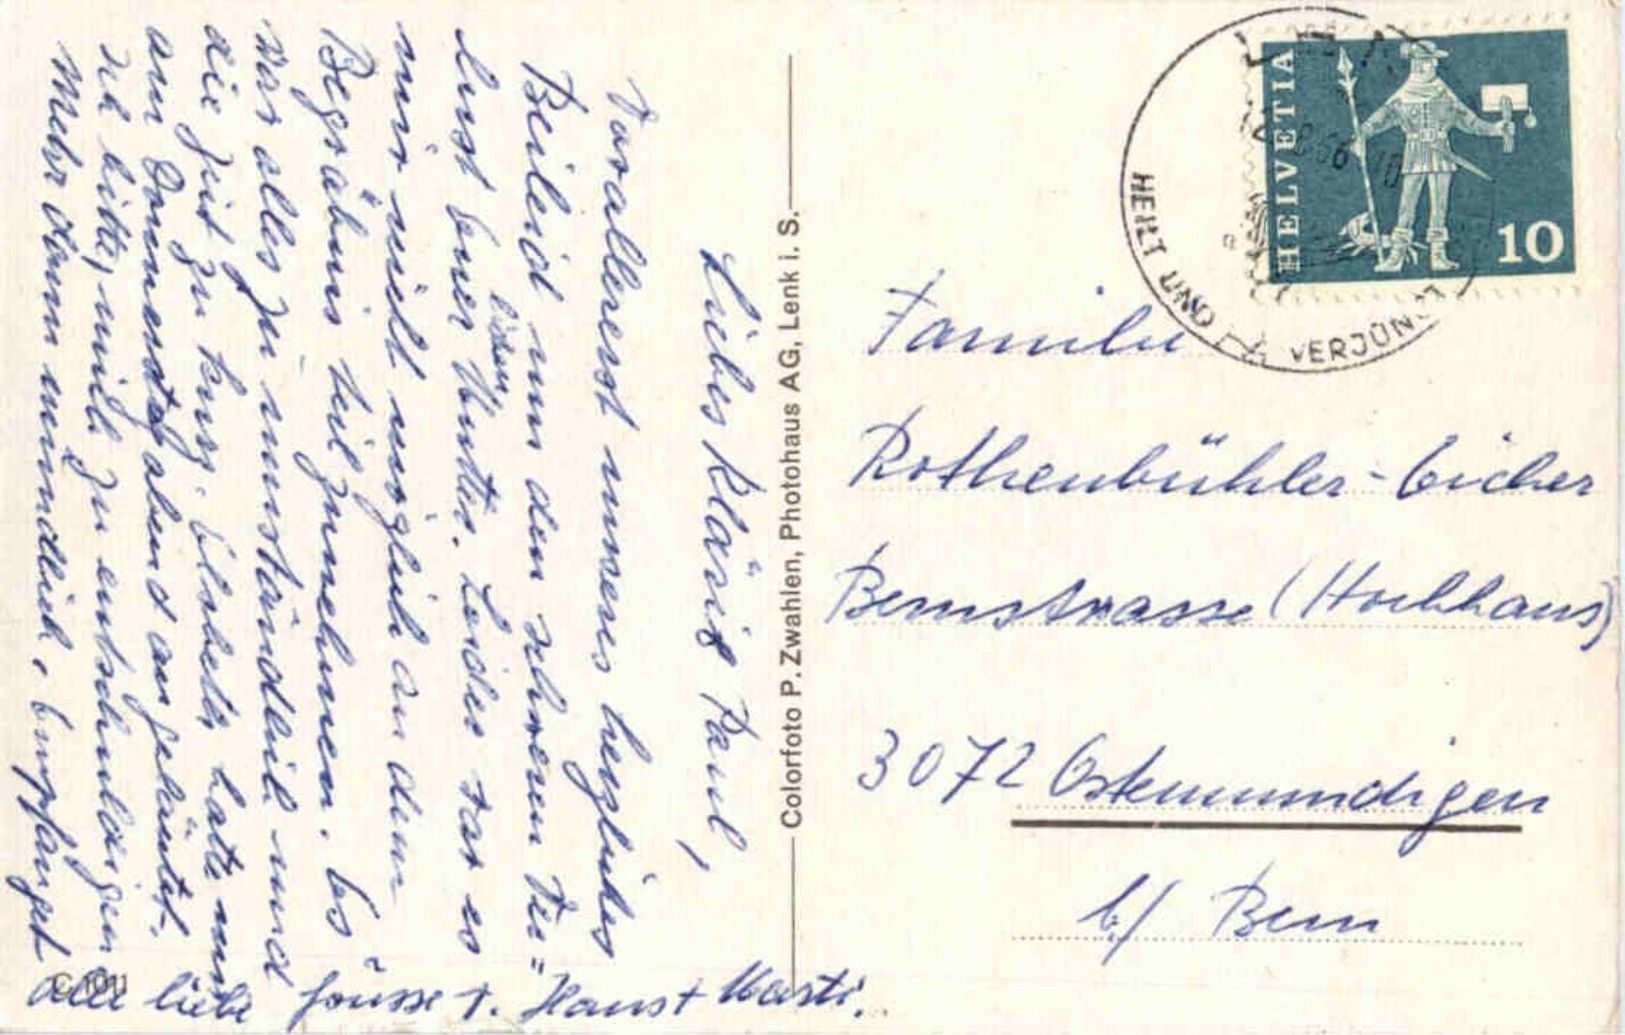 Liebes Kläsi & Paul,
Vorallererst unseres herzliches
Beileid nun den schweren Ver=
lust Euer lieben Mutter. Leider war es
mir nicht möglich an dem
Begräbnis teil zunehmen. Es
war alles zu umständlich und
die Zeit zu kurz. Elsbeth hatte mir
am Donnerstag abend angeläutet.
Ich bitte, mich zu entschuldigen
Mehr dann mündlich, Empfanget
alle liebe Grüsse v. Hans + Marti.
C 1011
Colorfoto P. Zwahlen, Photohaus AG, Lenk i. S.
HELVETIA
10
HEILT UND VERJÜN
Familie
Rothenbühler-Eicher
Bernstrasse (Hochhaus)
3072 Ostermundigen
b/ Bern